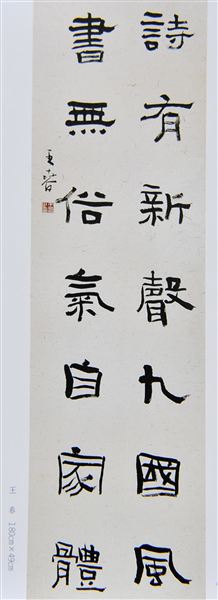 詩有新聲九國風
書無俗氣自家體
王春
王 春 180cm×49cm